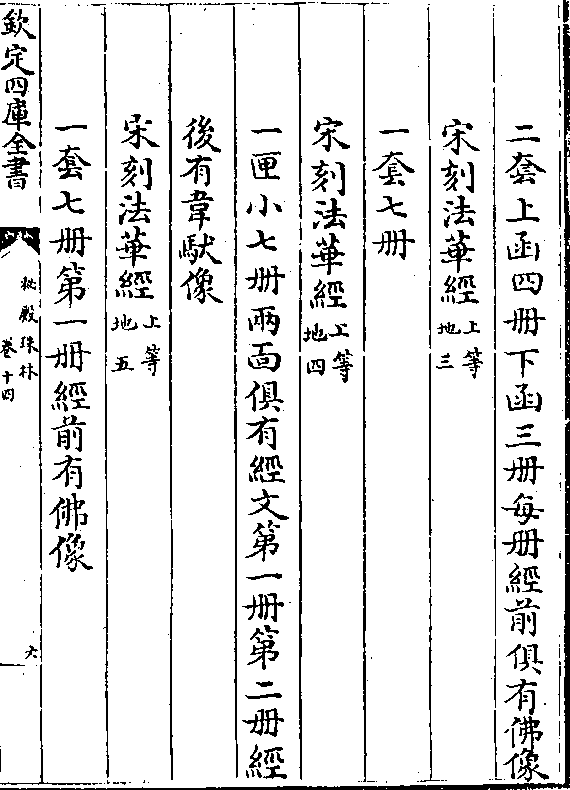 二套上函四册下函三册每册經前俱有佛像
宋刻法華經上等地三
一套七册
宋刻法華經上等地四
一匣小七册兩面俱有經文第一册第二册經
後有韋馱像
宋刻法華經上等地五
一套七册第一册經前有佛像
欽定四庫全書
秘殿珠林
卷十四
六